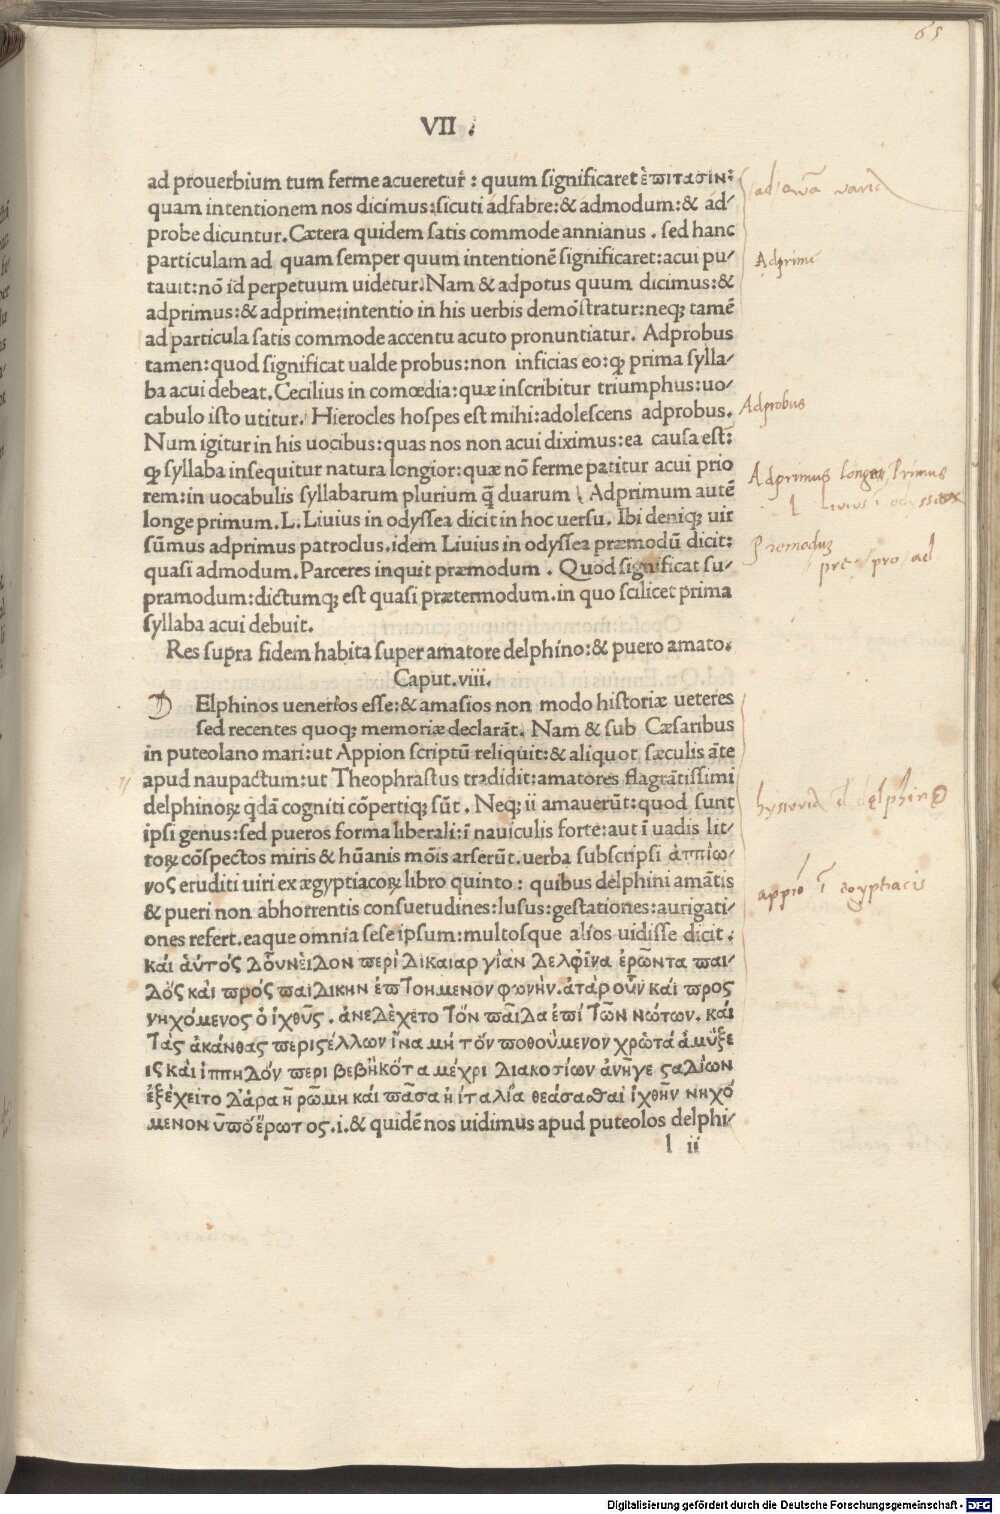 65
VII .
ad prouerbium tum ferme acueretur : quum significaret ἐπιτασιν:
quam intentionem nos dicimus:sicuti ádfabre:& admodum:& ád-
probe dicuntur.Cætera quidem satis commode annianus . sed hanc
particulam ad quam semper quum intentionẽ significaret:acui pu-
tauit:nõ id perpetuum uidetur.Nam & adpotus quum dicimus:&
adprimus:& adprime:intentio in his uerbis demõstratur:neqꝫ tamẽ
ad particula satis commode accentu acuto pronuntiatur. Adprobus
tamen:quod significat ualde probus:non inficias eo:qꝫ prima sylla-
ba acui debeat.Cecilius in comœdia:quæ inscribitur triumphus:uo-
cabulo isto utitur. Hierocles hospes est mihi:adolescens adprobus.
Num igitur in his uocibus:quas nos non acui diximus:ea causa est:
qꝫ syllaba insequitur natura longior:quæ nõ ferme patitur acui prio
rem:in uocabulis syllabarum plurium q̃ duarum . Adprimum autẽ
longe primum.L.Liuius in odyssea dicit in hoc uersu. Ibi deniqꝫ uir
sũmus adprimus patroclus.idem Liuius in odyssea præmodũ dicit:
quasi admodum.Parceres inquit præmodum . Quod significat su-
pramodum:dictumqꝫ est quasi prætermodum.in quo scilicet prima
syllaba acui debuit.
Res supra fidem habita super amatore delphino:& puero amato.
Caput.viii.
D Elphinos uenerios esse:& amasios non modo historiæ ueteres
sed recentes quoqꝫ memoriæ declarãt. Nam & sub Cæsaribus
in puteolano mari:ut Appion scriptũ reliquit:& aliquot sæculis ãte
apud naupactum:ut Theophrastus tradidit:amatores flagrãtissimi
delphinoꝝ q̃dã cogniti cõpertiqꝫ sũt . Neqꝫ ii amauerũt:quod sunt
ipsi genus:sed pueros forma liberali:ĩ nauiculis forte:aut ĩ uadis lit-
toꝝ cõspectos miris & hũanis mõis arserũt.uerba subscripsi ἀππίω-
νος eruditi uiri ex ægyptiacoꝝ libro quinto : quibus delphini amãtis
& pueri non abhorrentis consuetudines:lusus:gestationes:aurigati-
ones refert.eaque omnia sese ipsum:multosque alios uidisse dicit .
καὶ ἀυτός δ᾽οὖν εἶδον περὶ δικαιαρ γίαν δελφῖνα ἐρῶντα παι-
δός καὶ πρός παιδικην ἐπτοημενον φωνὴν.ἀτὰρ οὖν καὶ προς
νηχόμενος ὁ ἰχθῦς . ἀνεδέχετο τὸν παῖδα ἐπὶ τῶν νώτων. καὶ
τὰς ἀκάνθας περιςέλλων ἵνα μὴ τόν ποθούμενον χρῶτα ἀμύξε
ις καὶ ἱππηδόν περι βεβηκότα μέχρι διακοσίων ἀνῆγε ςαδίων
ἐξέχειτο δ᾽ἄρα ἡ ρώμη καὶ πᾶσα ἡ ἰταλία θεάσασθαι ἰχθὴν νηχό
μενον ὑπό ἔρωτος.i.& quidẽ nos uidimus apud puteolos delphi-
l ii
Adprimi
Adprobus
Adprimus longe Primus
Premodum
pre / pro / ad
hystoria d delphino
appio ĩ egyptiacis